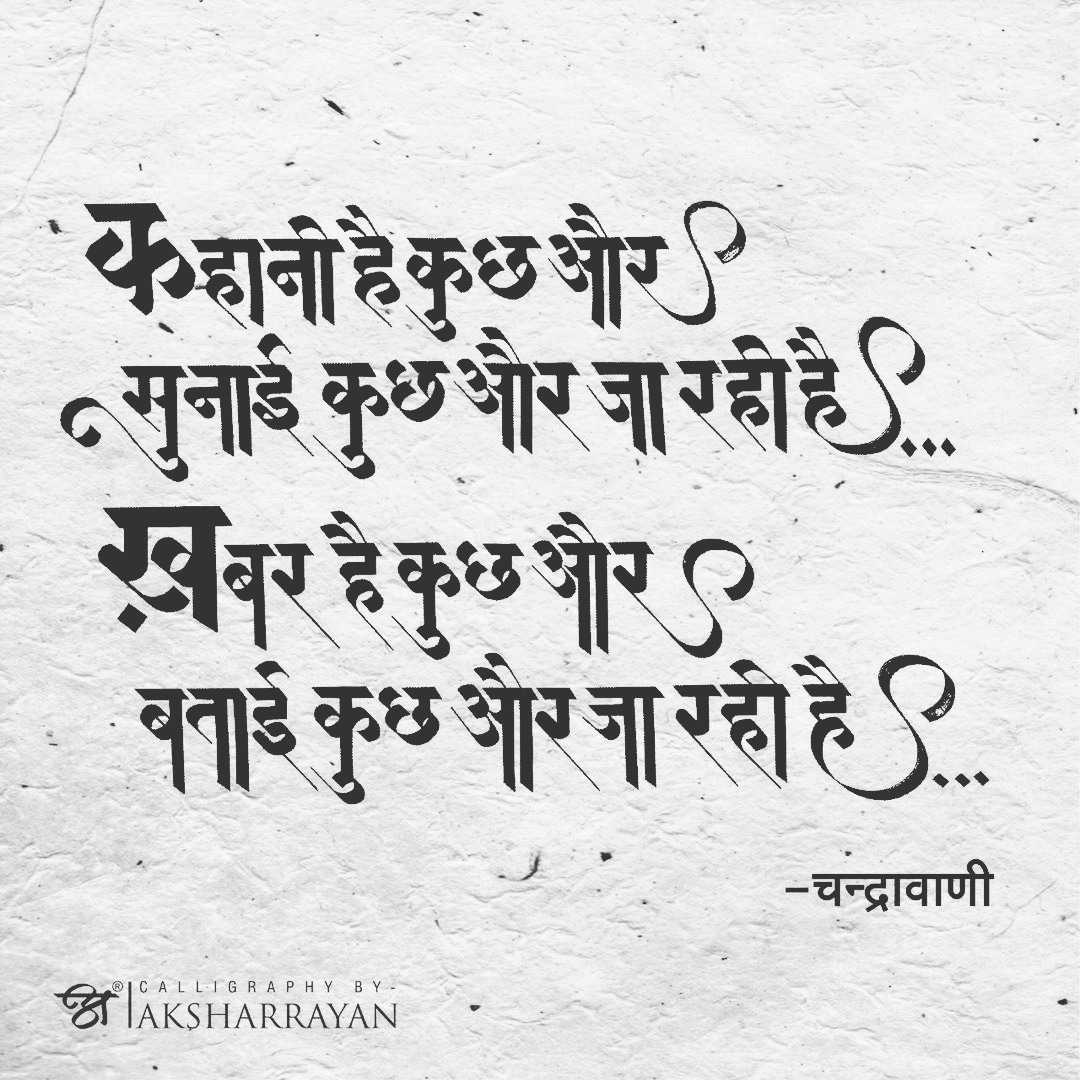 कहानी है कुछ और
सुनाई कुछ और जा रही है...
ख़बर है कुछ और
बताई कुछ और जा रही है...
-चन्द्रावाणी
® CALLIGRAPHY BY-
AKSHARRAYAN